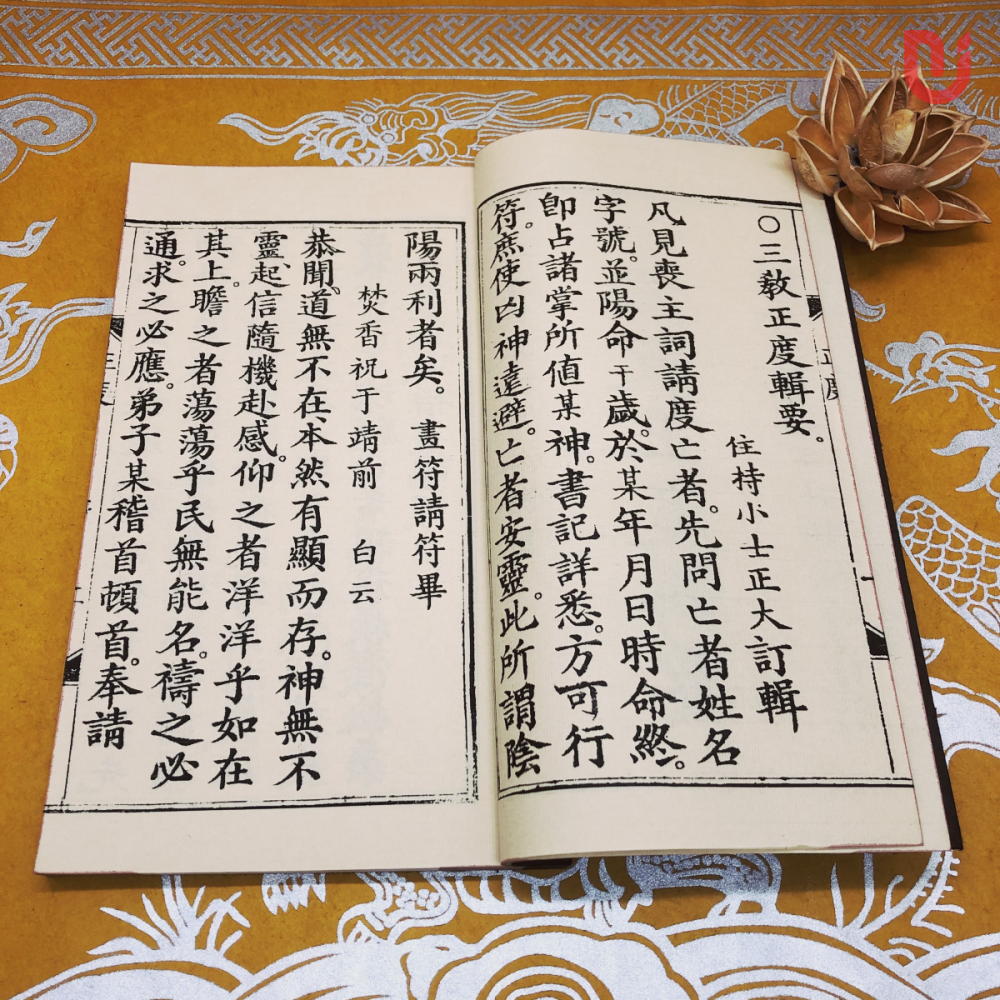 〇三教正度輯要。
住持小士正大訂輯
凡見喪主詞請度亡者。先問亡者姓名
字號。並陽命干歲。於某年月日時命終。
卽占諸掌所值某神。書記詳悉。方可行
符。庶使凶神遠避。亡者安靈。此所謂陰
陽兩利者矣。畫符請符畢
焚香祝于靖前 白云
恭聞、道無不在、本然有顯而存。神無不
靈、起信隨機赴感。仰之者洋洋乎如在
其上。瞻之者蕩蕩乎民無能名。禱之必
通。求之必應。弟子某稽首頓首。奉請
正度